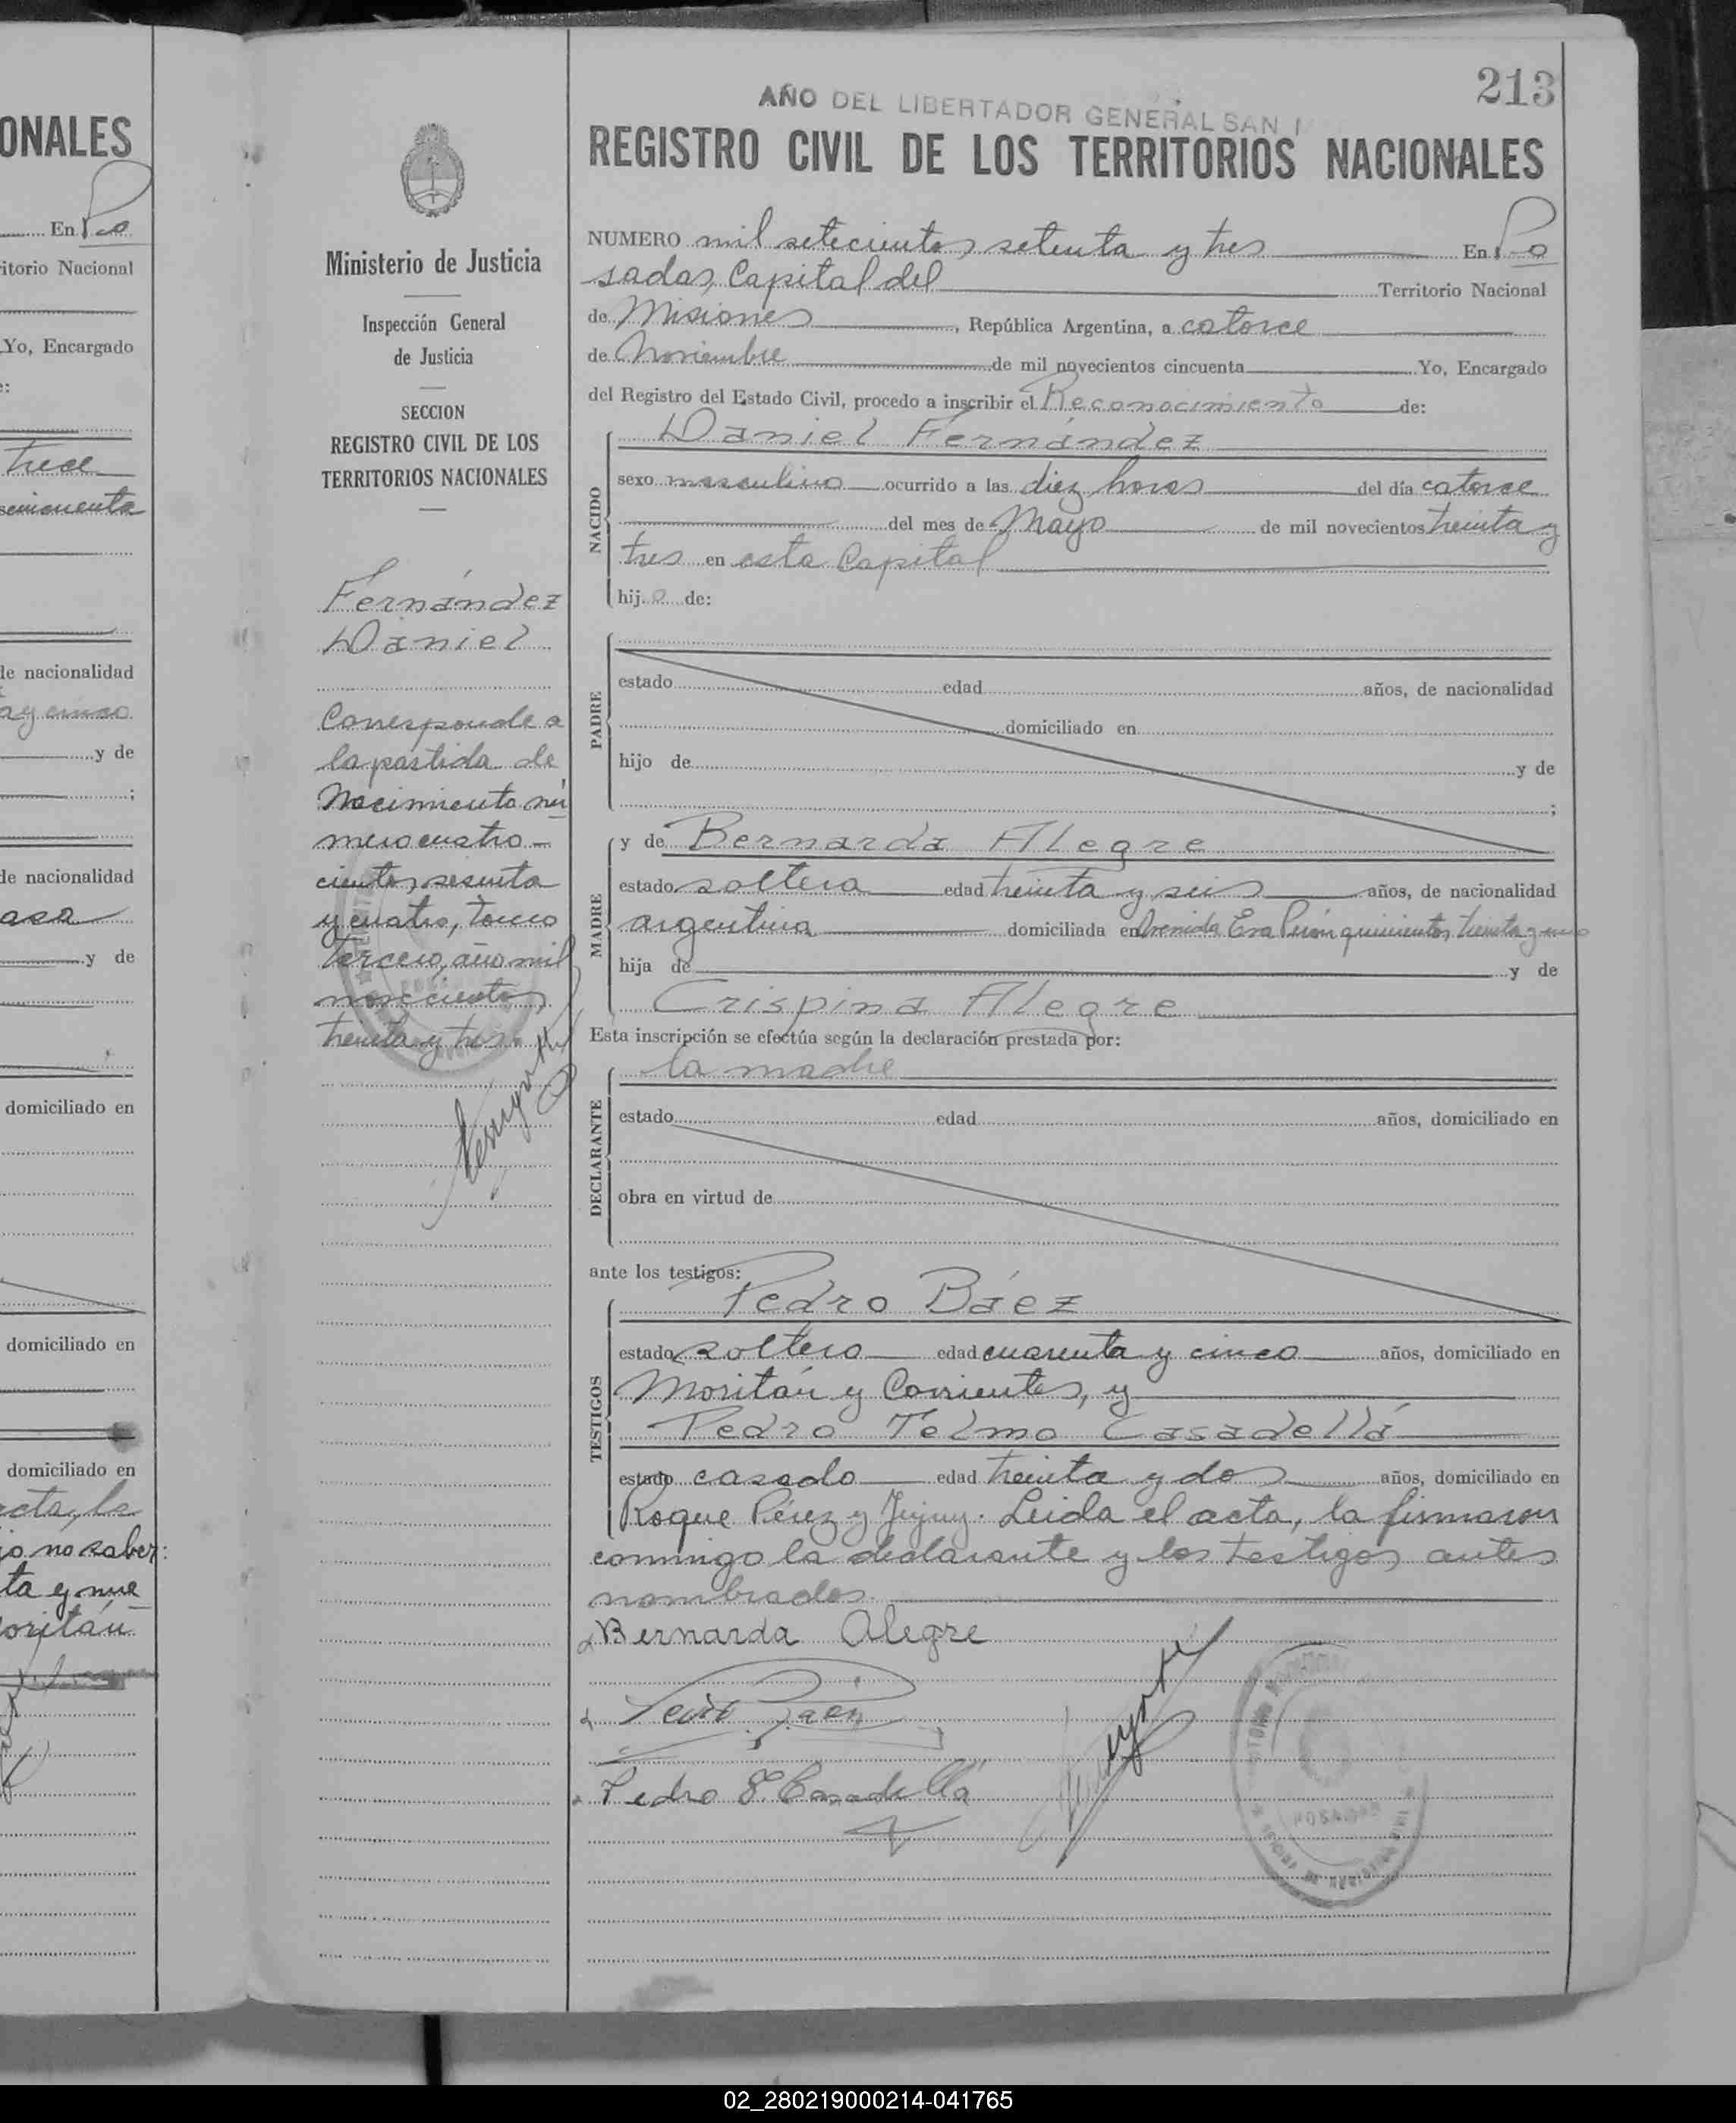 ONALES
En Po
itorio Nacional
Yo, Encargado
trece
de nacionalidad
y de
;
de nacionalidad
y de
domiciliado en
domiciliado en
domiciliado en
acta, la
no saber:
213
AÑO DEL LIBERTADOR GENERAL SAN
REGISTRO CIVIL DE LOS TERRITORIOS NACIONALES
Ministerio de Justicia
Inspección General
de Justicia
SECCION
REGISTRO CIVIL DE LOS
TERRITORIOS NACIONALES
Fernández
Daniel
Corresponde a
la partida de
Nacimiento nú
mero cuatro-
cientos sesenta
y cuatro, tomo
tercero, año mil
novecientos
treinta y tres.
NUMERO mil setecientos setenta y tres En Po
sadas, Capital del Territorio Nacional
de Misiones, República Argentina, a catorce
de Noviembre de mil novecientos cincuenta Yo, Encargado
del Registro del Estado Civil, procedo a inscribir el Reconocimiento de:
NACIDO
Daniel Fernández
sexo masculino ocurrido a las diez horas del día catorce
del mes de Mayo de mil novecientos treinta y
tres en esta Capital
hijo de:
PADRE
estado edad años, de nacionalidad
domiciliado en
hijo de y de
;
MADRE
y de Bernarda Alegre
estado soltera edad treinta y seis años, de nacionalidad
argentina domiciliada en Avenida Eva Perón quinientos treinta y uno
hija de y de
Crispina Alegre
Esta inscripción se efectúa según la declaración prestada por:
DECLARANTE
la madre
estado edad años, domiciliado en
obra en virtud de
ante los testigos:
TESTIGOS
Pedro Báez
estado soltero edad cuarenta y cinco años, domiciliado en
Moritán y Corrientes, y
Pedro Telmo Casadellá
estado casado edad treinta y dos años, domiciliado en
Roque Pérez y Jujuy. Leida el acta, la firmaron
conmigo la declarante y los testigos antes
nombrados.
Bernarda Alegre
Pedro Báez
Pedro T. Casadellá
POSADAS
02_280219000214-041765